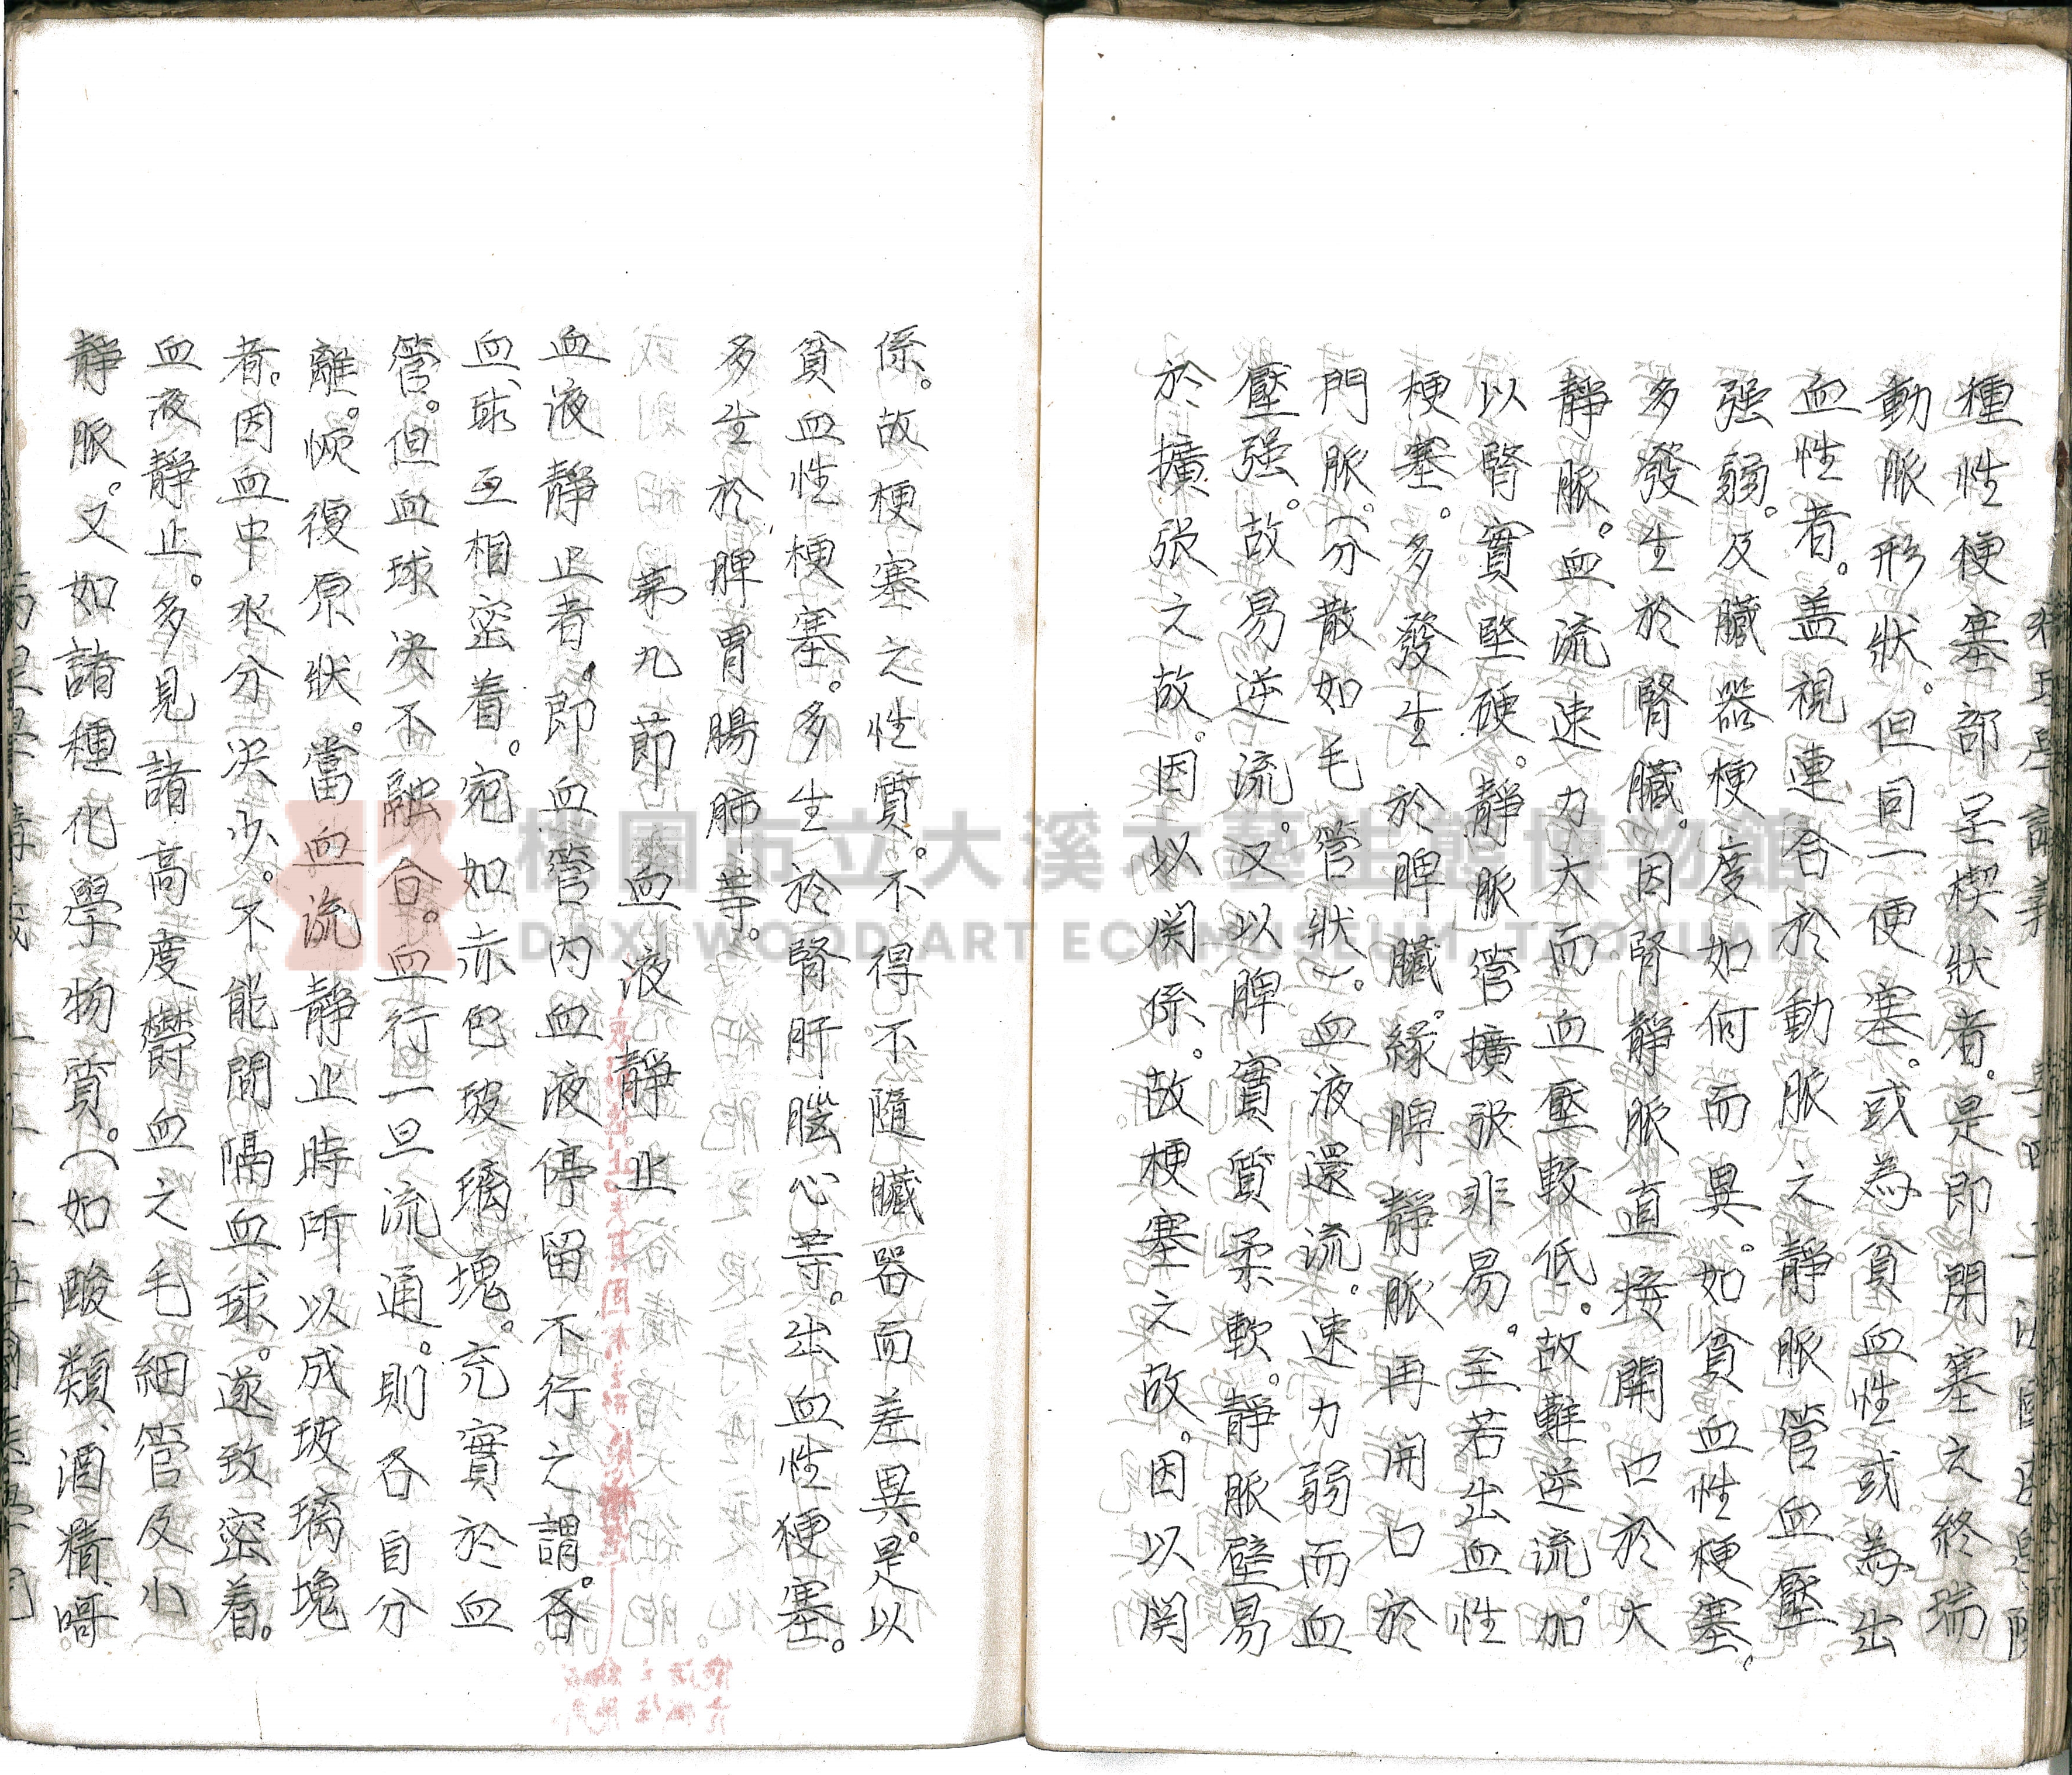 種性梗塞部呈楔狀者。是即閉塞之終瑞
動脈形狀。但同一梗塞。或為貧血性或為出
血性者。盖視連合於動脈之靜脈管血壓
强弱。及臟器梗度如何而異。如貧血性梗塞。
多發生於腎臟。因腎靜脈直接開口於大
靜脈。血流速力大而血壓較低。故難逆流。加
以腎實堅硬。靜脈管擴張非易。至若出血性
梗塞。多發生於脾臟。緣脾靜脈再開口於
門脈。（分散如毛管狀）。血液還流。速力弱而血
壓强。故易逆流。又以脾實質柔軟。靜脈壁易
於擴張之故。因以関係。故梗塞之故。因以関
係。故梗塞之性質。不得不隨臟器而差異。是以
貧血性梗塞。多生於腎肝腦心等。出血性梗塞。
多生於脾胃腸肺等。
第九節 血液靜止
血液靜止者。即血管内血液停留不行之謂。各
血球互相密着。宛如赤色玻璃塊。充實於血
管。但血球决不融合。血行一旦流通。則各自分
離。恢復原狀。當血流靜止時所以成玻璃塊
者。因血中水分决少。不能間隔血球。遂致密着。
血液靜止。多見諸高度欝血之毛細管及小
靜脈。又如諸種化學物質。（如酸類、酒精、哥
桃園市立大溪木藝生態博物館
DAXI WOOD ART ECOMUSEUM, TAOYUAN